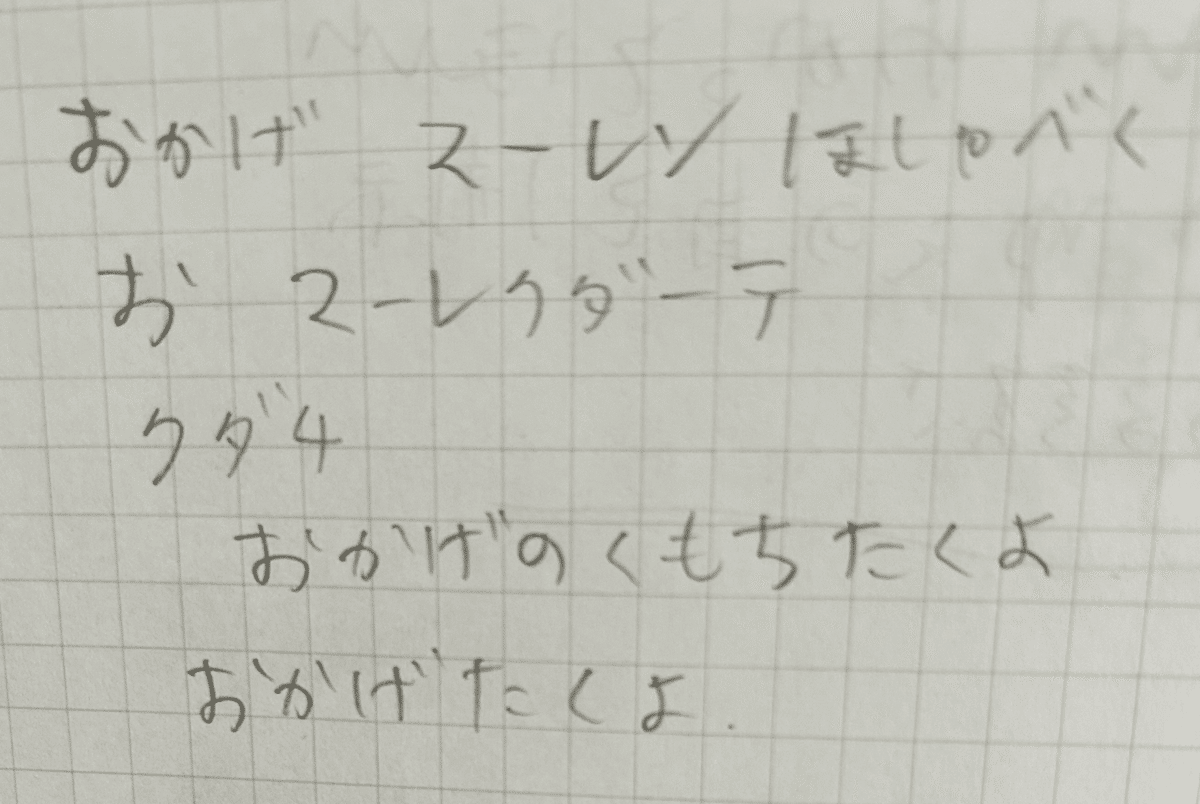 おかげ マーレソ ほしゃべく
お マーレクダーテ
クダ4
おかげのくもちたくよ
おかげたくよ.